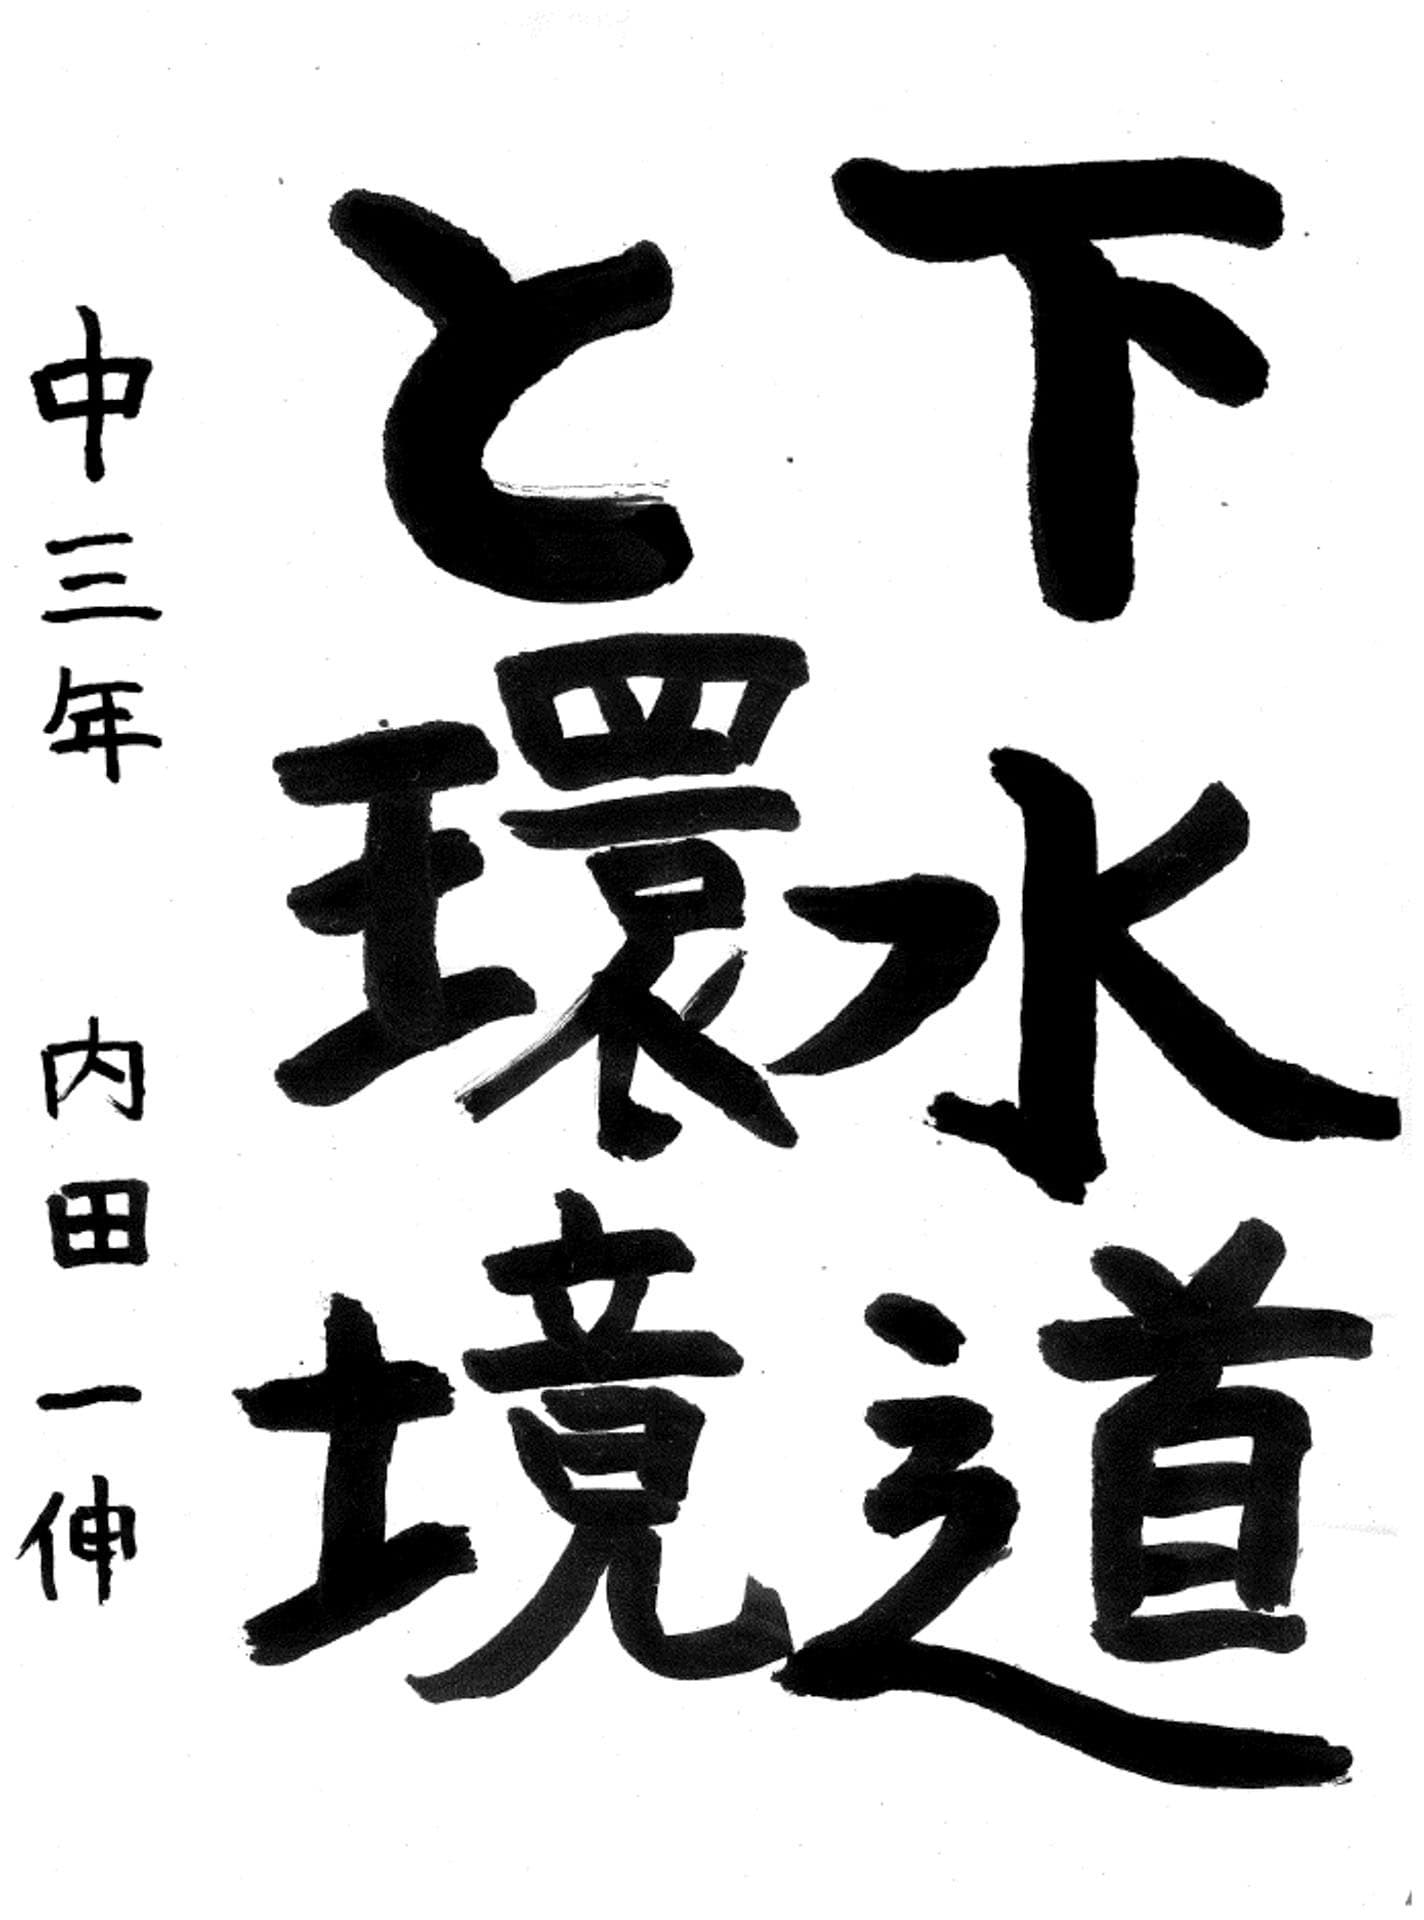 下水道
と環境
中三年 内田一伸